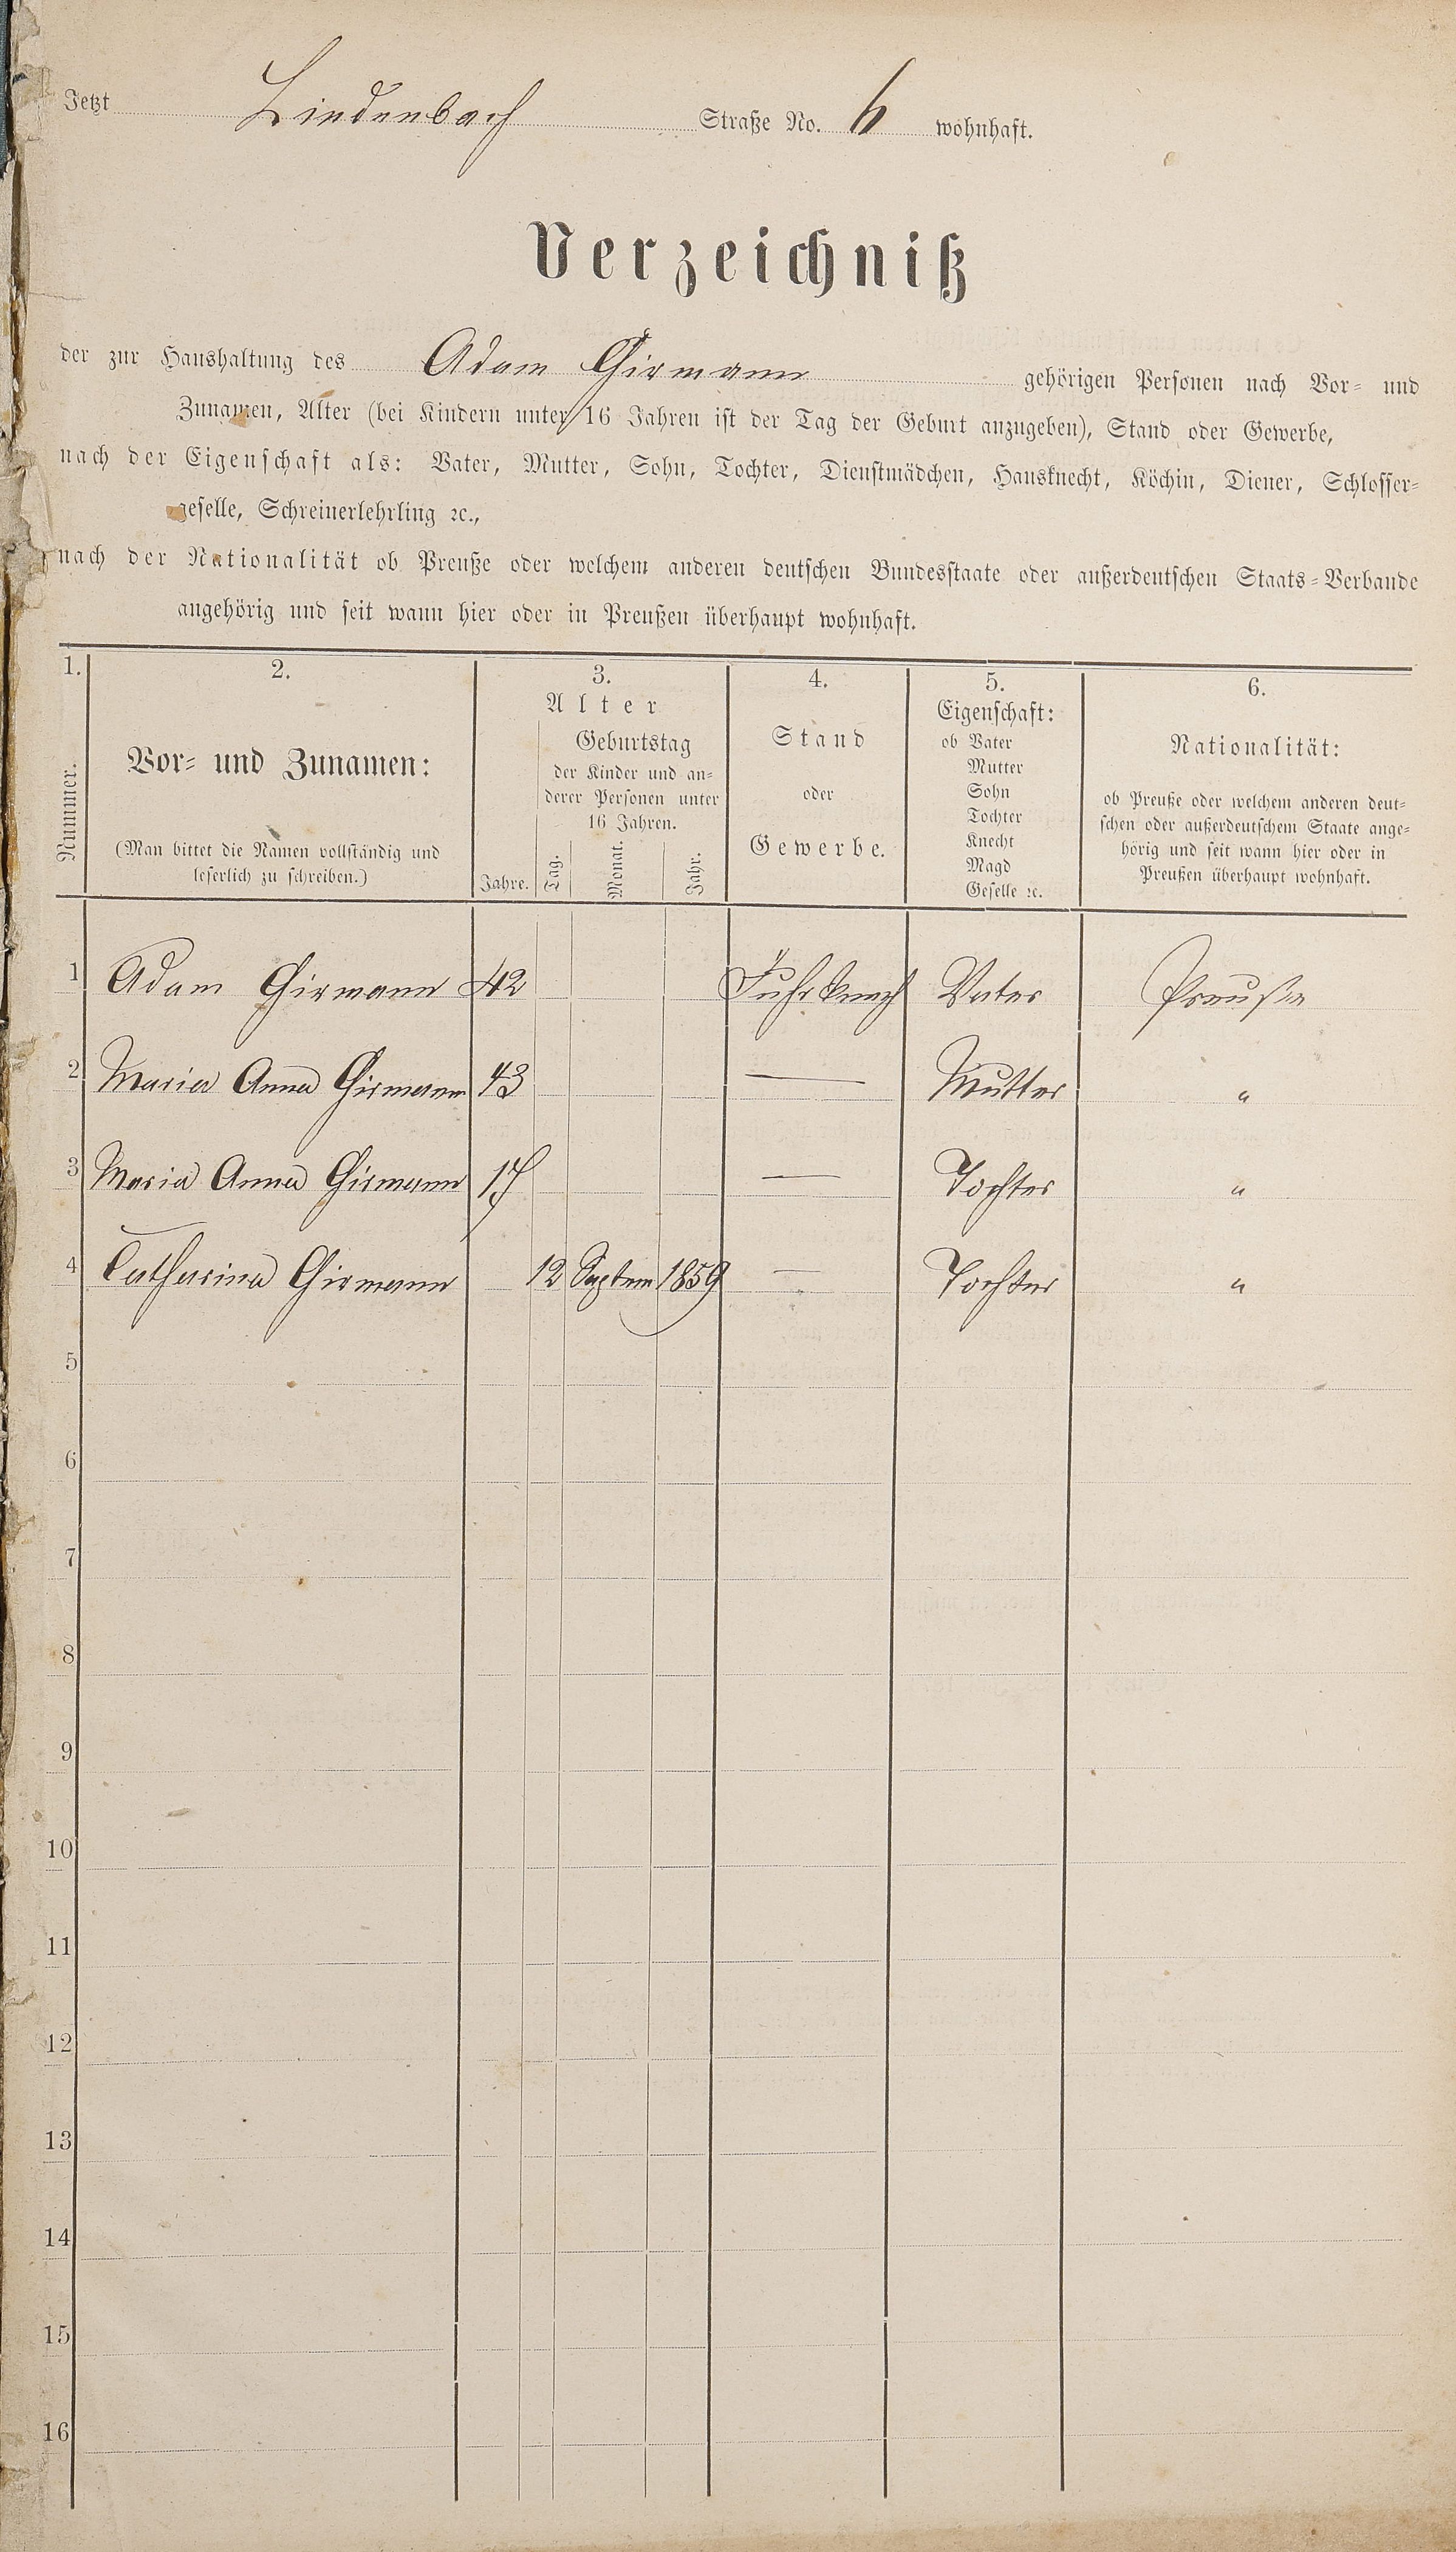 Jetzt Lindenbach Straße No. 6 wohnhaft.
Verzeichniß
der zur Haushaltung des Adam Girmann gehörigen Personen nach Vor- und
Zunamen, Alter (bei Kindern unter 16 Jahren ist der Tag der Geburt anzugeben), Stand oder Gewerbe,
nach der Eigenschaft als: Vater, Mutter, Sohn, Tochter, Dienstmädchen, Hausknecht, Köchin, Diener, Schlosser-
geselle, Schreinerlehrling ꝛc.,
nach der Nationalität ob Preuße oder welchem anderen deutschen Bundesstaate oder außerdeutschen Staats-Verbande
angehörig und seit wann hier oder in Preußen überhaupt wohnhaft.
1. 2. 3. 4. 5. 6.
Nummer.
Vor- und Zunamen:
(Man bittet die Namen vollständig und
leserlich zu schreiben.)
Alter
Jahre.
Geburtstag
der Kinder und an-
derer Personen unter
16 Jahren.
Tag. Monat. Jahr.
Stand
oder
Gewerbe.
Eigenschaft:
ob Vater
Mutter
Sohn
Tochter
Knecht
Magd
Geselle ꝛc.
Nationalität:
ob Preuße oder welchem anderen deut-
schen oder außerdeutschem Staate ange-
hörig und seit wann hier oder in
Preußen überhaupt wohnhaft.
1 Adam Girmann 42 Fuhrknech Vater Preuße
2 Maria Anna Girmann 43 — Mutter "
3 Maria Anna Girmann 17 — Tochter "
4 Catharina Girmann 12 Septem 1859 — Tochter "
5
6
7
8
9
10
11
12
13
14
15
16